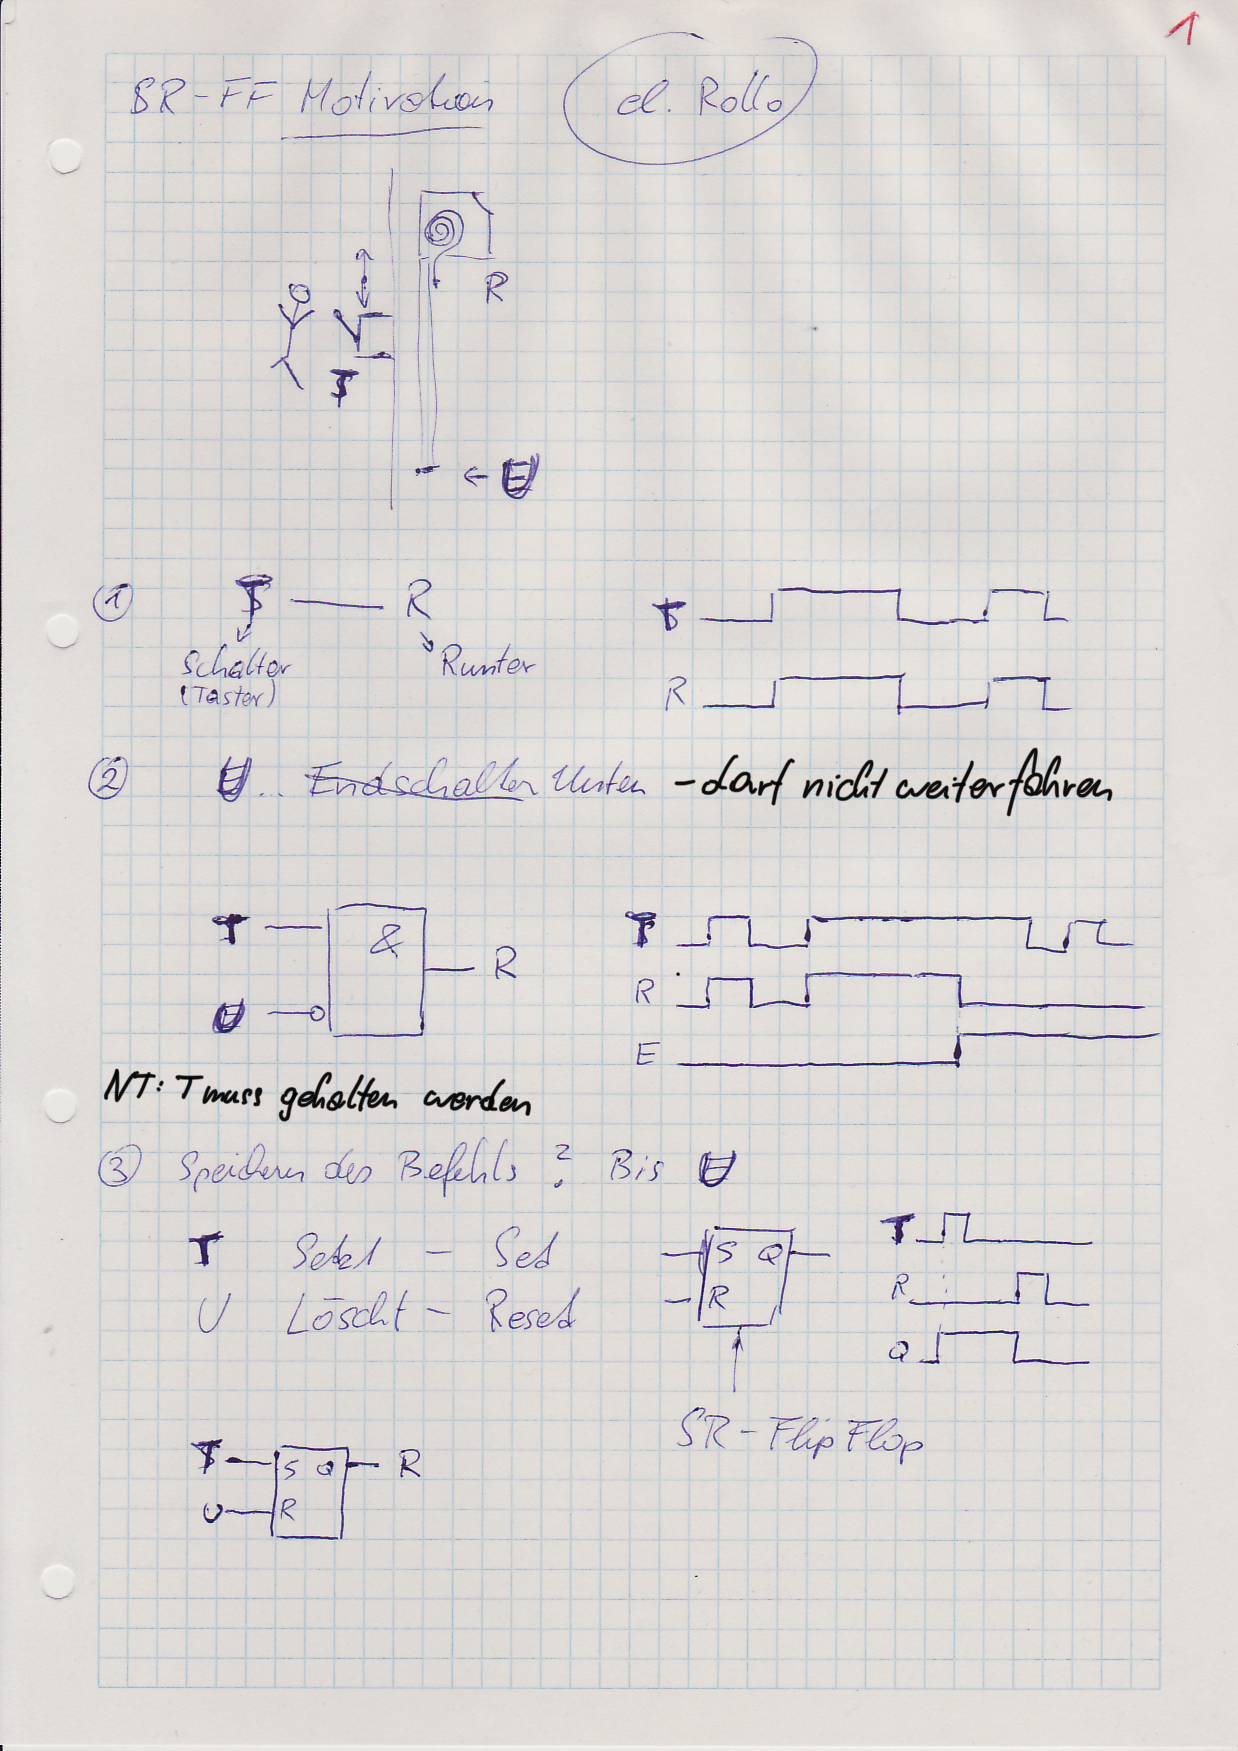 1
SR-FF Motivation el. Rollo
R
T
← U
① T — R
Schalter
(Taster)
Runter
T
R
② U ... Endschalter Unten - darf nicht weiterfahren
T
&
R
U
T
R
E
NT: T muss gehalten werden
③ Speichern des Befehls ? Bis U
T Setzt - Set
U Löscht - Reset
S Q
R
T
R
Q
SR-FlipFlop
T S Q R
U R